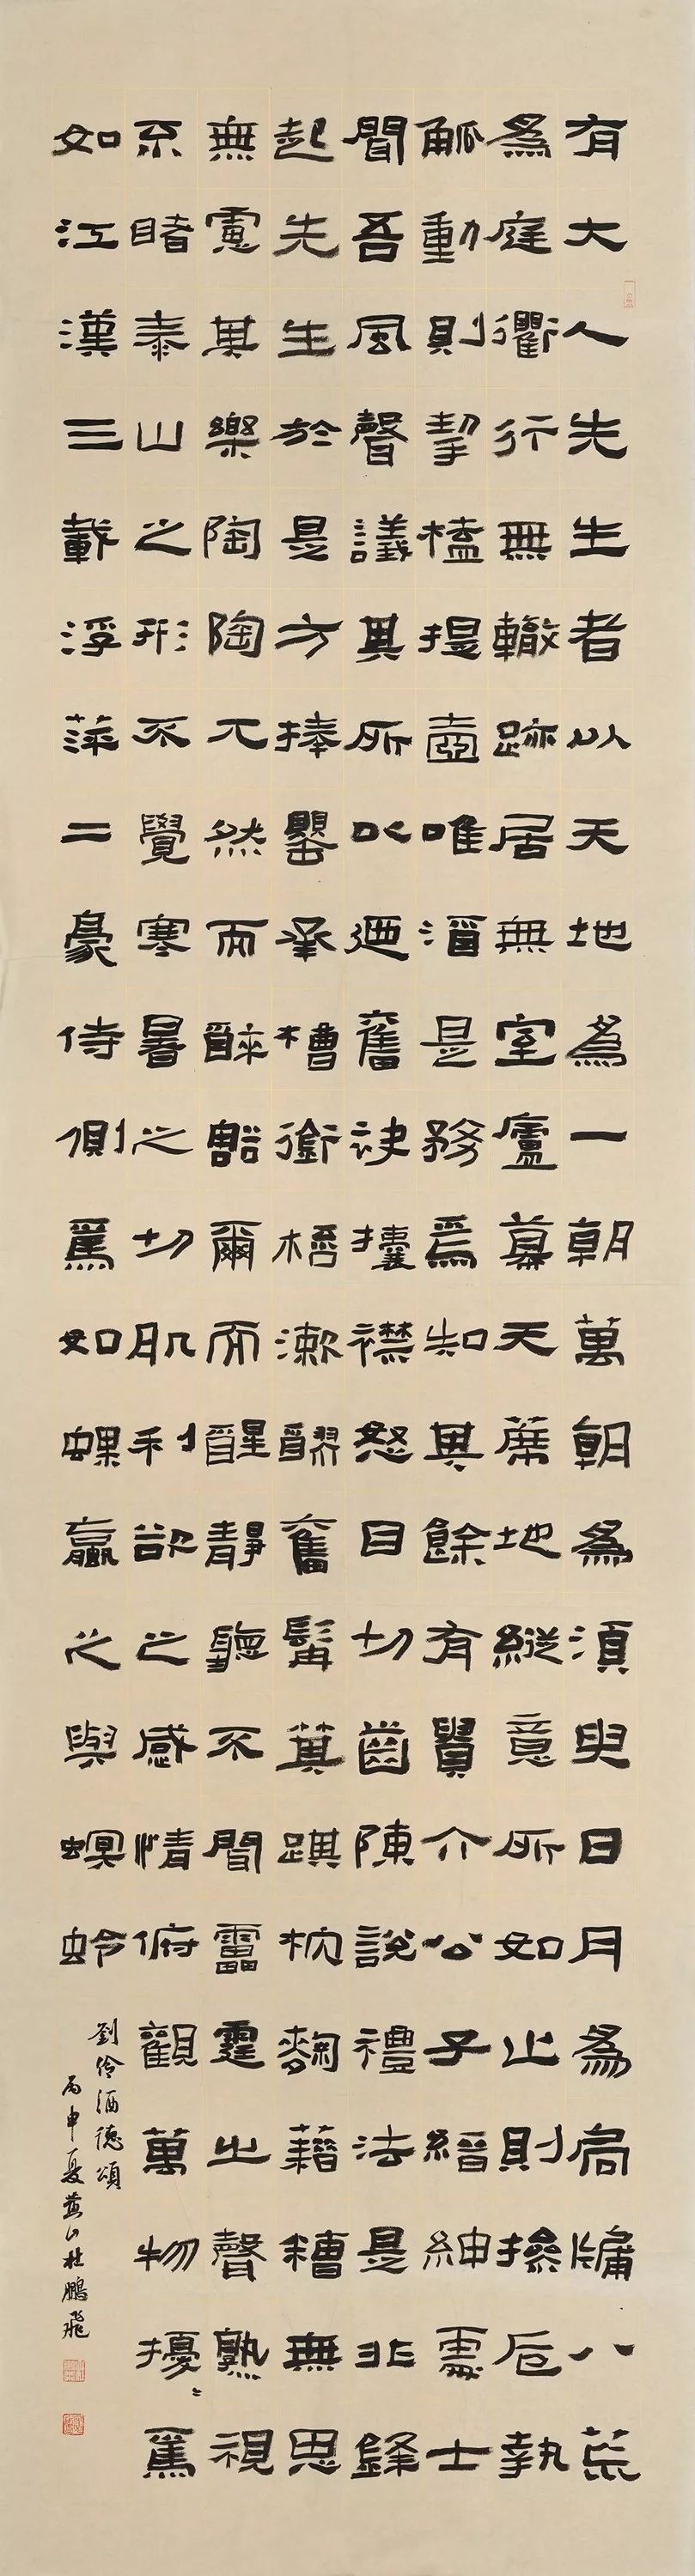 有大人先生者以天地為一朝萬朝為須臾日月為扃牖八荒
為庭衢行無轍跡居無室廬幕天席地縱意所如止則操卮執
觚動則挈榼提壺唯酒是務焉知其餘有貴介公子縉紳處士
聞吾風聲議其所以迺奮袂攘襟怒目切齒陳說禮法是非鋒
起先生於是方捧罌承槽銜桮漱醪奮髯箕踑枕麴藉糟無思
無慮其樂陶陶兀然而醉豁爾而醒靜聽不聞雷霆之聲熟視
不睹泰山之形不覺寒暑之切肌利欲之感情俯觀萬物擾〻焉
如江漢三載浮萍二豪侍側焉如蜾蠃之與螟蛉
劉伶酒德頌
丙申夏燕山杜鵬飛